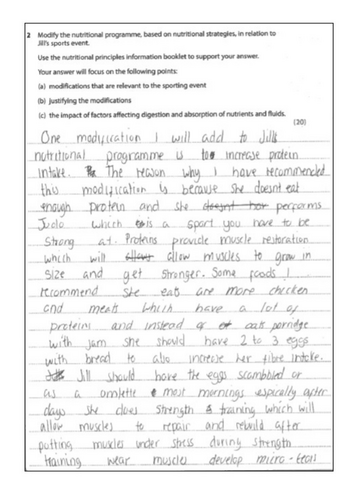 2 Modify the nutritional programme, based on nutritional strategies, in relation to
Jill's sports event.
Use the nutritional principles information booklet to support your answer.
Your answer will focus on the following points:
(a) modifications that are relevant to the sporting event
(b) justifying the modifications
(c) the impact of factors affecting digestion and absorption of nutrients and fluids.
(20)
One modification I will add to Jill's
nutritional programme is to increase protein
intake. The reason why I have recommended
this modification is because she doesnt eat
enough protein and she performs
Judo which is a sport you have to be
strong at. Proteins provide muscle restoration
which will allow muscles to grow in
size and get stronger. Some foods I
recommend she eats are more chicken
and meats which have a lot of
proteins and instead of oats porridge
with jam she should have 2 to 3 eggs
with bread to also increase her fibre intake.
Jill should have the eggs scrambbled or
as a omplette most mornings espically after
days she does strength training which will
allow muscles to repair and rebuild after
putting muscles under stress during strength
training wear muscles develop micro-tears